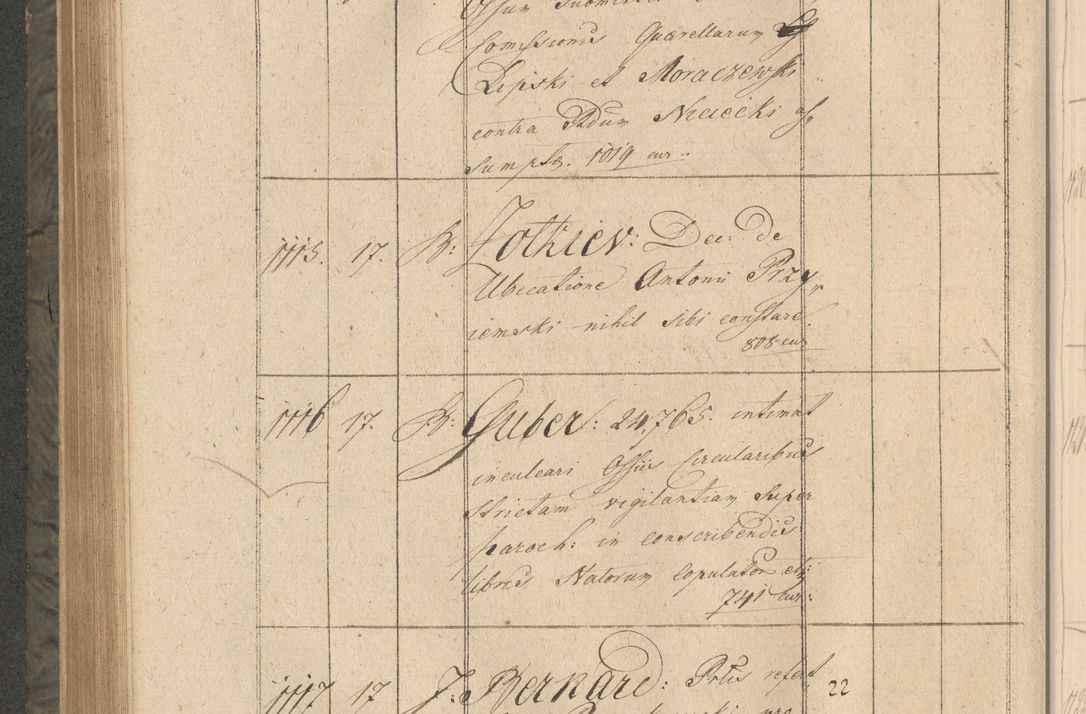 Comissionis Quaerellarum
Lipski et Moraczewski
contra Pdum Nieciecki as,,
sumpta. 1019 cur.
1115. 17. R: Zolkiev: Dec: de
Ubicatione Antonii Przy,,
iemski nihil sibi constare
808 cur.
1116 17. R: Guber: 24,765. intimat
inculcari Offiis Circularibus
strictam vigilantiam super
paroch: in conscribendis
libris Natorum copulator: etc:
741 cur:
1117 17 J: Bernard: Prtus refert 22